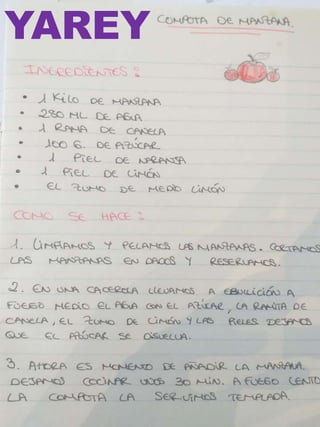 YAREY
COMPOTA DE MANZANA.
INGREDIENTES:
• 1 Kilo DE MANZANA
• 280 ML DE AGUA
• 1 RAMA DE CANELA
• 100 G. DE AZÚCAR
• 1 PIEL DE NARANJA
• 1 PIEL DE LIMÓN
• EL ZUMO DE MEDIO LIMÓN
COMO SE HACE:
1. LIMPIAMOS Y PELAMOS LAS MANZANAS. CORTAMOS
LAS MANZANAS EN DADOS Y RESERVAMOS.
2. EN UNA CACEROLA LLEVAMOS A EBULLICIÓN A
FUEGO MEDIO EL AGUA CON EL AZÚCAR, LA RAMITA DE
CANELA, EL ZUMO DE LIMÓN Y LAS PIELES DEJAMOS
QUE EL AZÚCAR SE DISUELVA.
3. AHORA ES MOMENTO DE AÑADIR LA MANZANA.
DEJAMOS COCINAR UNOS 30 MIN. A FUEGO LENTO
LA COMPOTA LA SERVIMOS TEMPLADA.